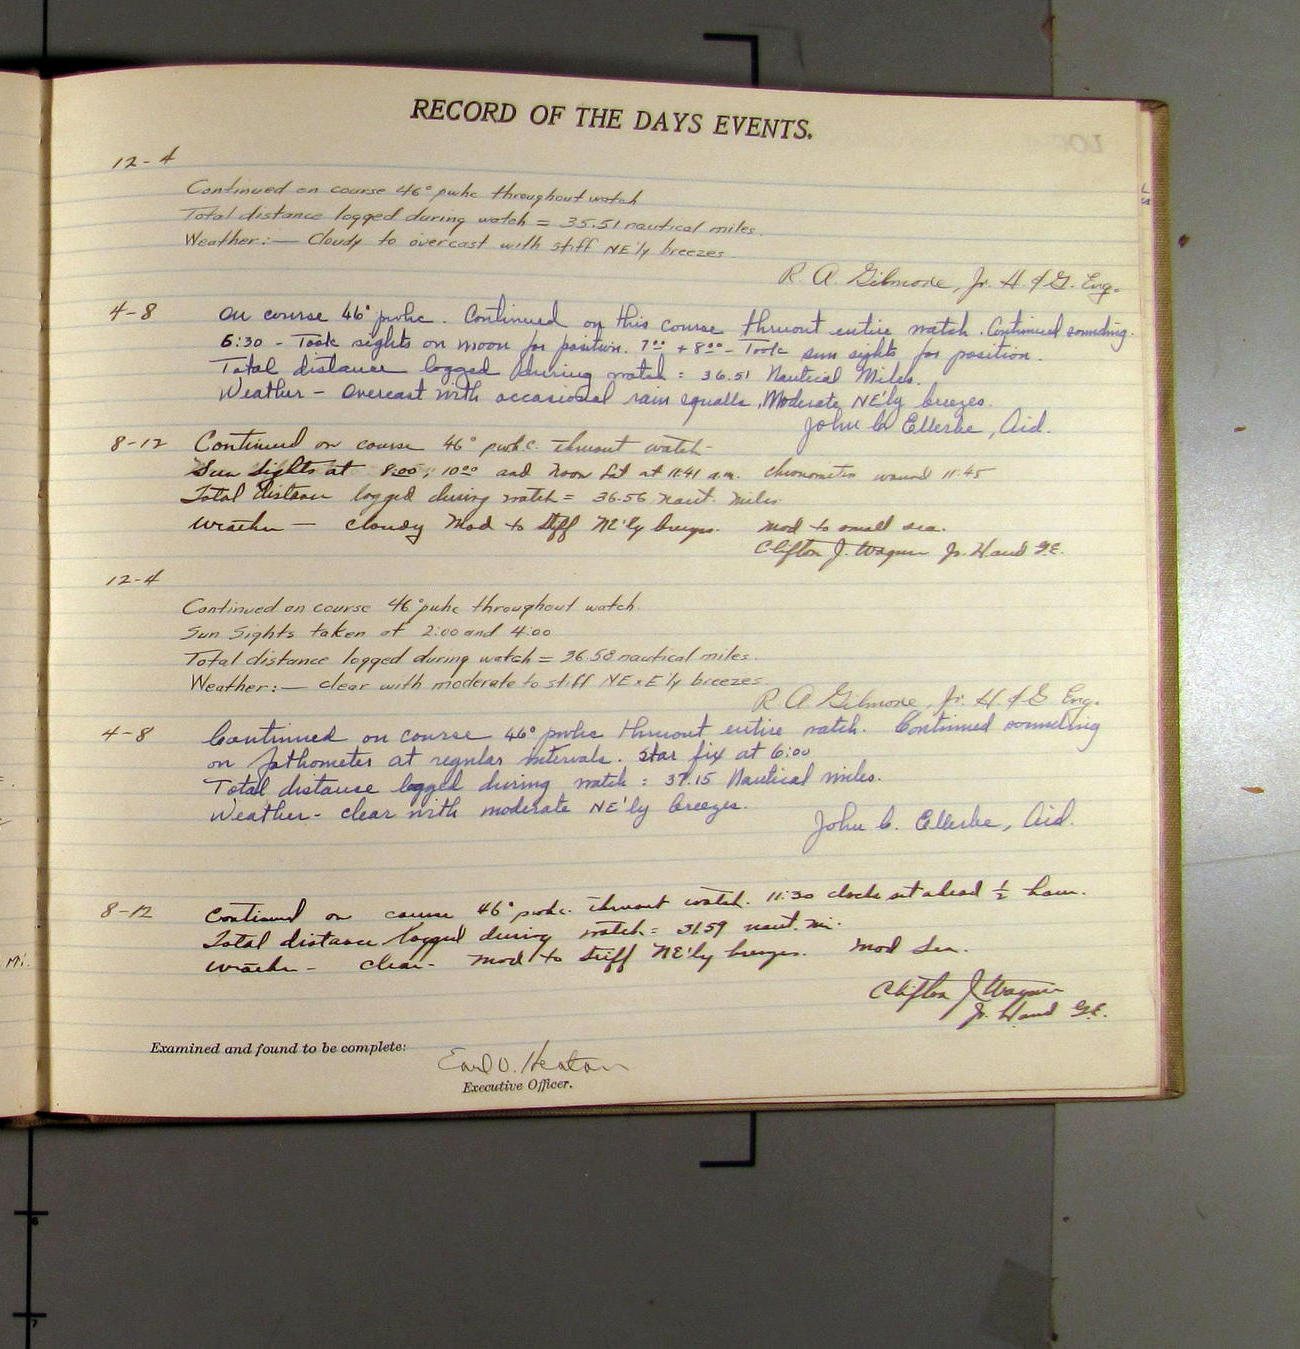 RECORD OF THE DAYS EVENTS.
12-4
Continued on course 46° pwhc throughout watch
Total distance logged during watch = 35.51 nautical miles.
Weather:— Cloudy to overcast with stiff NE'ly breezes.
R. A. Gilmore, Jr. H. & G. Eng.
4-8 On course 46° pwhc. Continued on this course thruout entire watch. Continued sounding.
6:30 - Took sights on moon for position. 7:00 + 8:00 - Took sun sights for position.
Total distance logged during watch = 36.51 Nautical Miles.
Weather - Overcast with occasional rain squalls, Moderate NE'ly breezes.
John C. Ellerbe, Aid.
8-12 Continued on course 46° pwhc. thruout watch-
Sun Sights at 8:00, 10:00 and Noon Lat at 11:41 a.m. chronometer wound 11:45
Total distance logged during watch = 36.56 naut. miles.
Weather — cloudy Mod to stiff NE'ly breezes. Mod to small sea.
Clifton J. Wagner Jr. H. and G.E.
12-4
Continued on course 46° pwhc throughout watch.
Sun Sights taken at 2:00 and 4:00
Total distance logged during watch = 36.58 nautical miles.
Weather:— Clear with moderate to stiff NE x E'ly breezes.
R. A. Gilmore, Jr. H. & G Eng.
4-8 Continued on course 46° pwhc thruout entire watch. Continued sounding
on fathometer at regular intervals. Star fix at 6:00
Total distance logged during watch = 37.15 Nautical miles.
Weather - clear with moderate NE'ly breezes.
John C. Ellerbe, Aid.
8-12 Continued on course 46° pwhc. thruout watch. 11:30 clocks set ahead ½ hour.
Total distance logged during watch = naut. mi.
Weather - Clear - Mod to Stiff NE'ly breezes. Mod Sea.
Clifton J. Wagner
Jr. H. and G.E.
Examined and found to be complete:
Earl O. Heaton
Executive Officer.